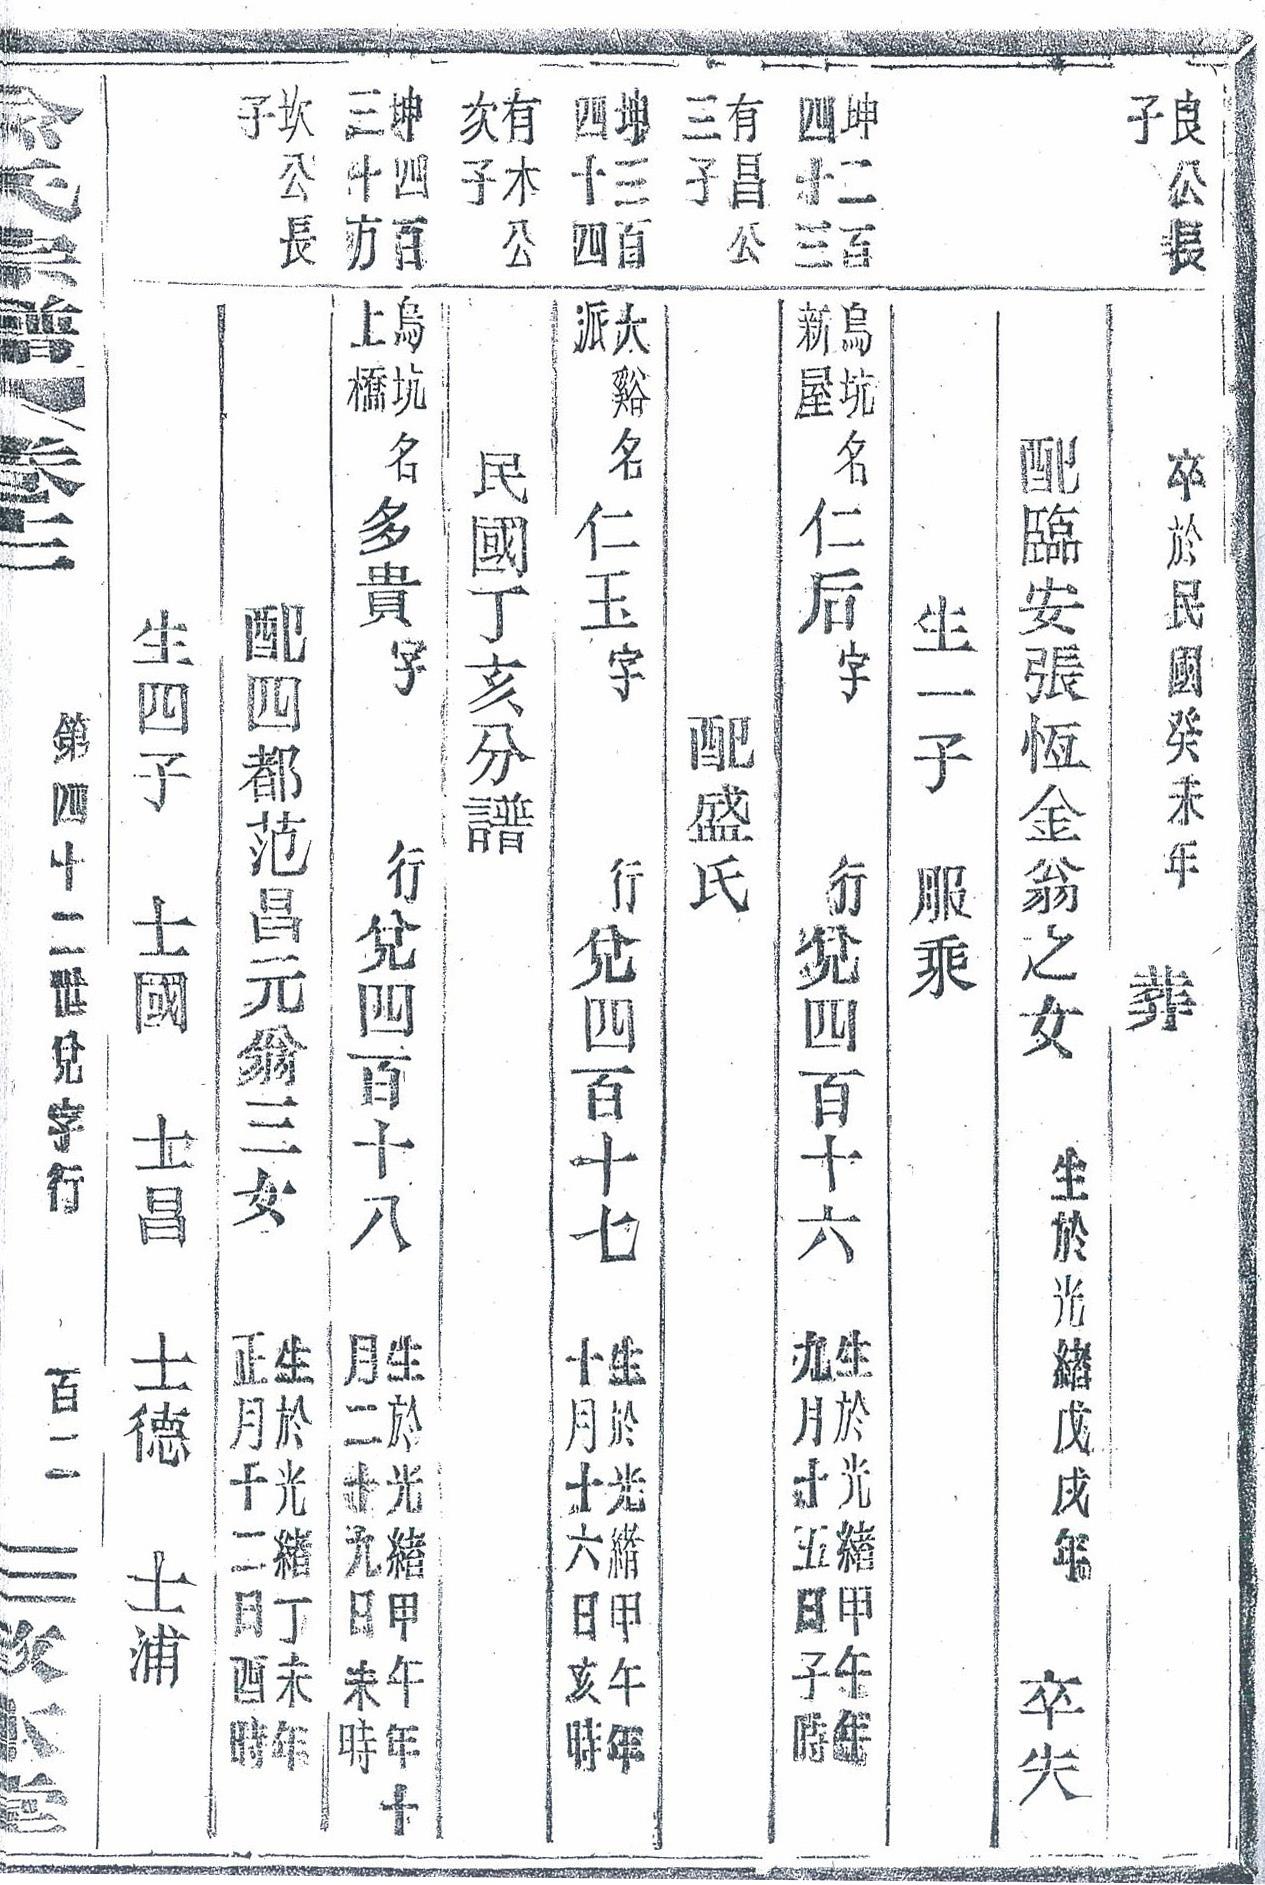 良公長
子
卒於民國癸未年 葬
配臨安張恆金翁之女 生於光緒戊戌年 卒失
生一子 服乘
坤二百
四十三
烏坑
新屋
名仁后字 行兌四百十六
生於光緒甲午年
九月十五日子時
有昌公
三子
配盛氏
坤三百
四十四
大谿
派
名仁玉字 行兌四百十七
生於光緒甲午年
十月十六日亥時
有木公
次子
民國丁亥分譜
坤四百
三十方
烏坑
上橋
名多貴字 行兌四百十八
生於光緒甲午年十
月二十九日未時
坎公長
子
配四都范昌元翁三女
生於光緒丁未年
正月十二日酉時
生四子 士國 士昌 士德 士浦
氏宗譜 卷三
第四十二世兌字行 百二
本堂